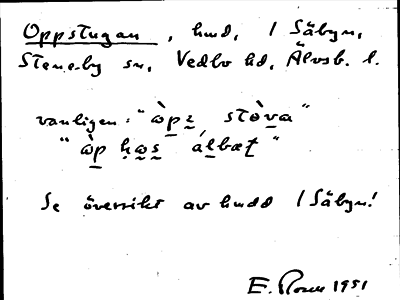 Oppstugan, hmd, 1 Säbyn,
Steneby sn, Vedbo hd, Älvsb. l.
vanligen: "òpɛ stòva"
"òp hɷs álbæt"
Se översikt av hmdd 1 Säbyn!
E. Rosen 1951